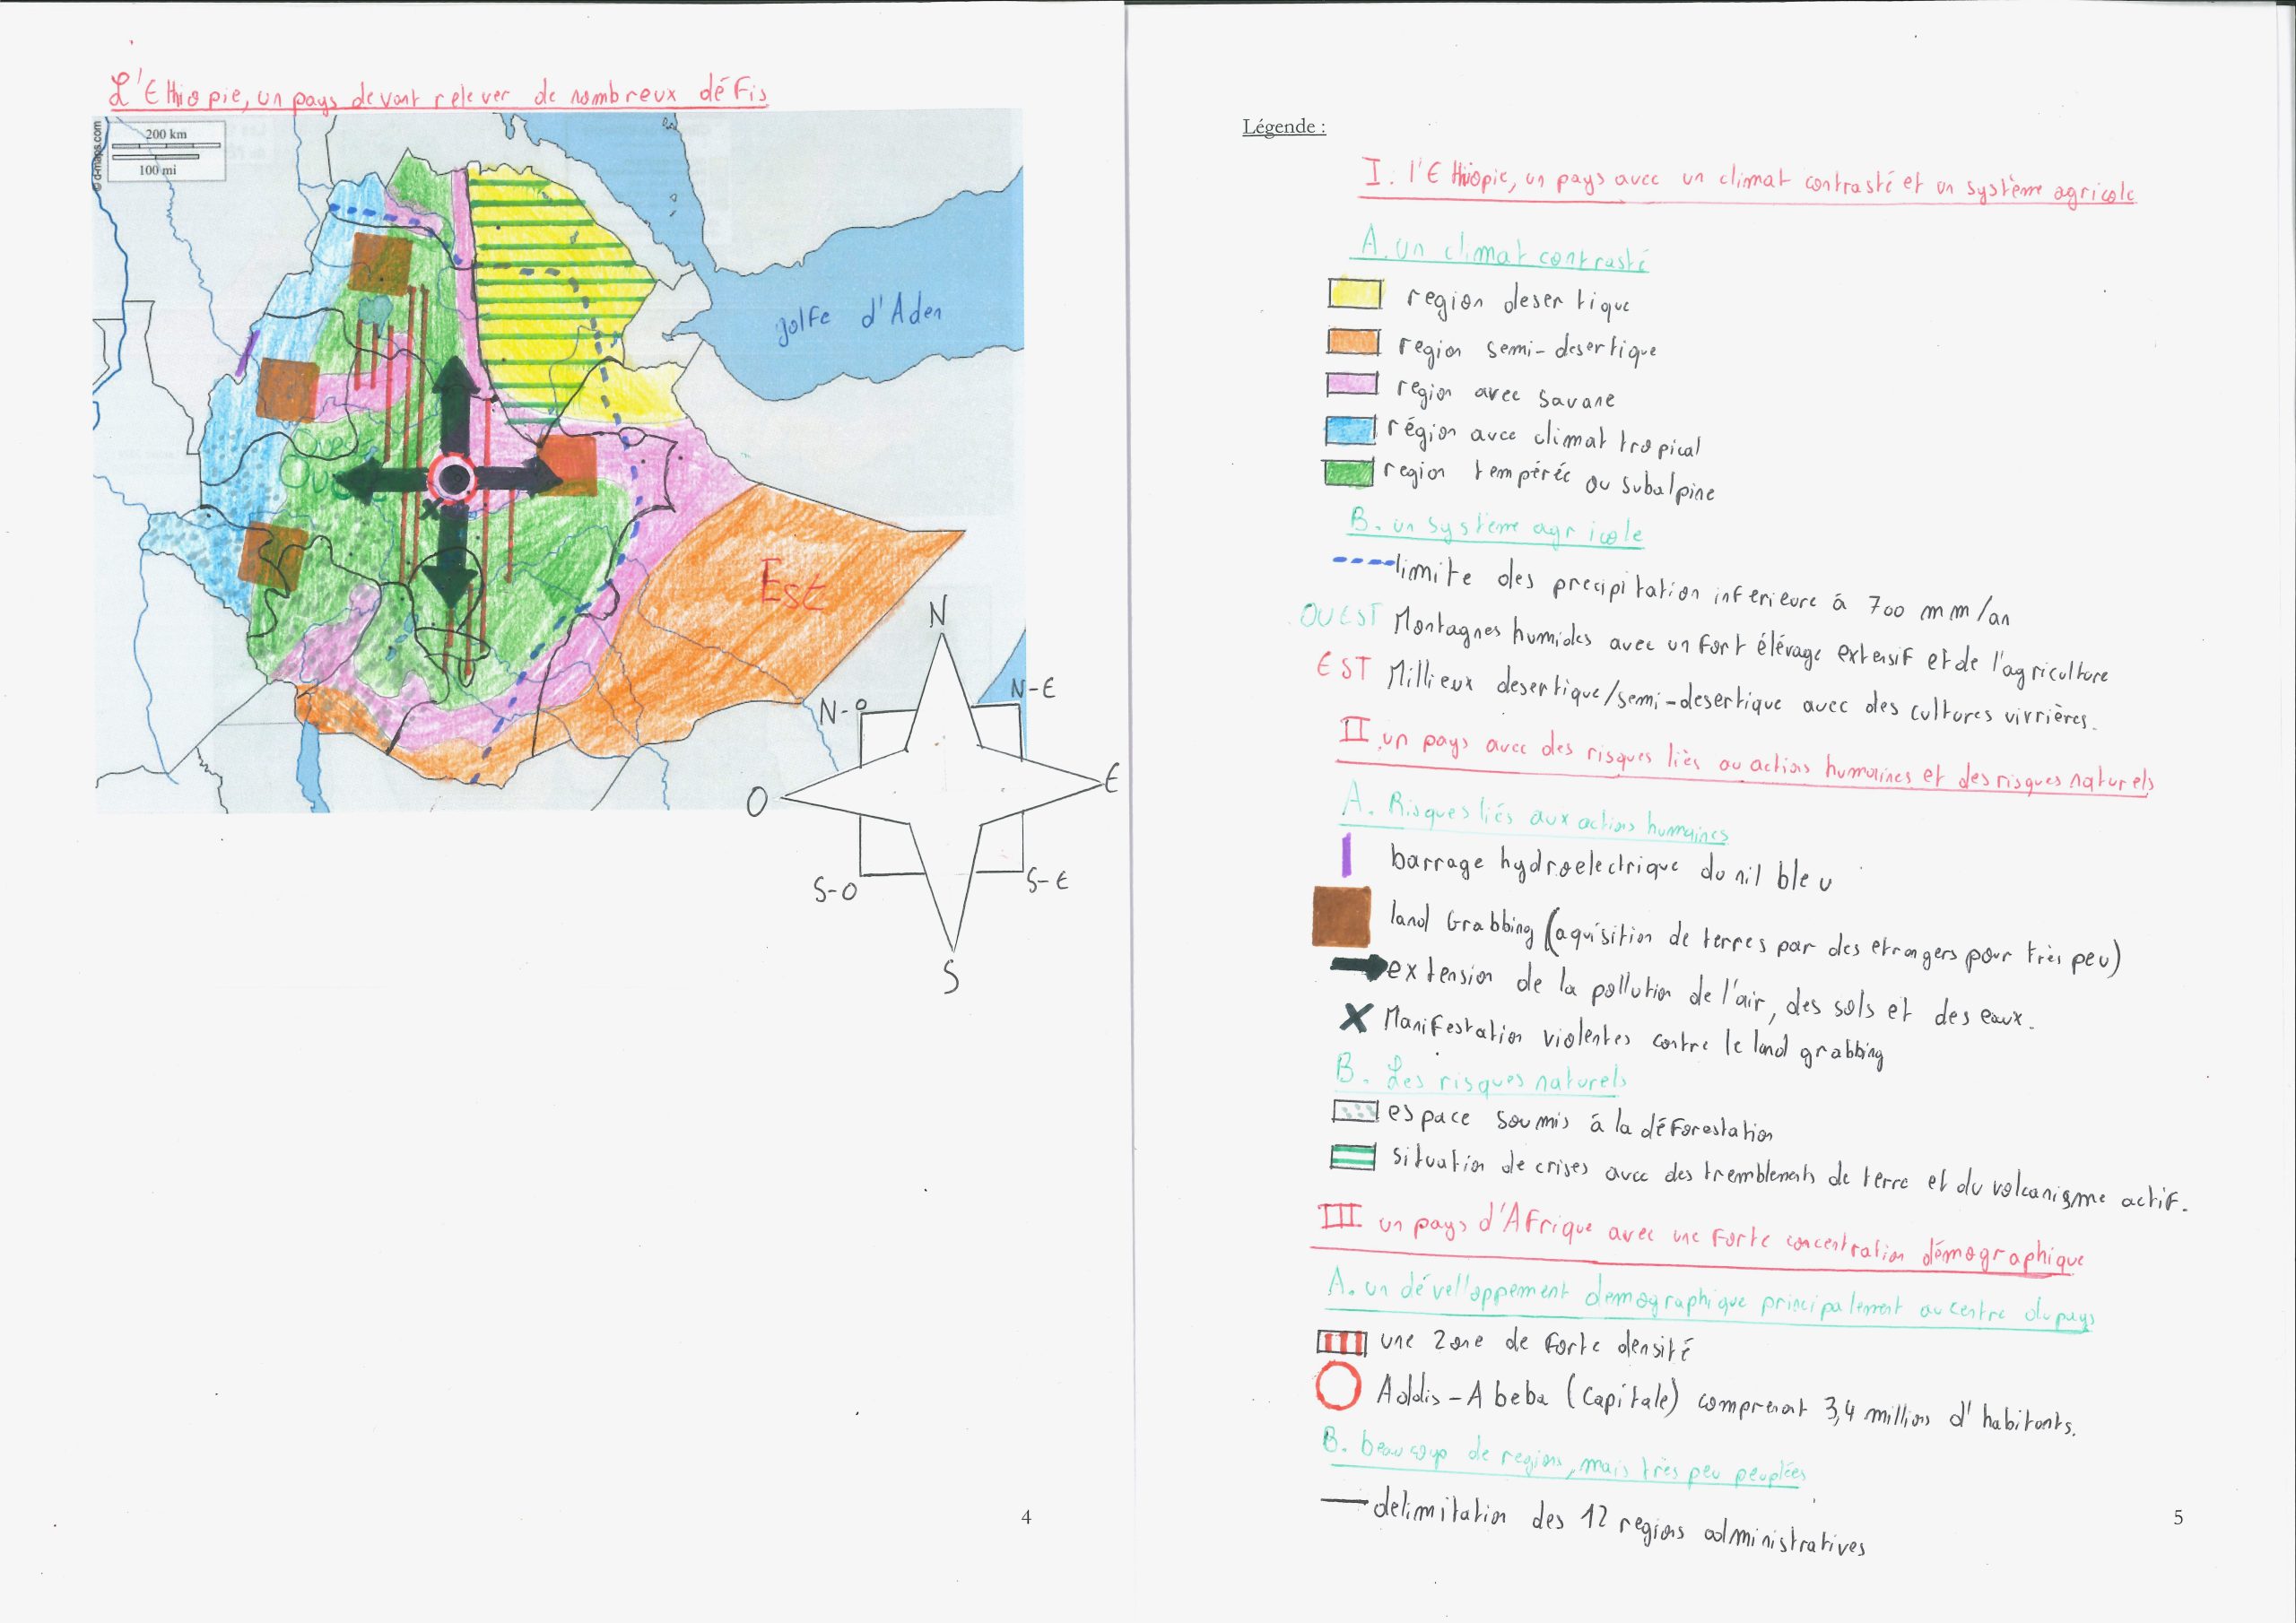 L'Ethiopie, un pays devant relever de nombreux défis
© d-maps.com
200 km
100 mi
golfe d'Aden
Ouest
Est
N
N-O
N-E
O
E
S-O
S-E
S
4
Légende :
I. l'Ethiopie, un pays avec un climat contrasté et un système agricole
A. un climat contrasté
region desertique
region semi-desertique
region avec savane
région avec climat tropical
region tempérée ou subalpine
B. un système agricole
limite des precipitation inferieure à 700 mm/an
OUEST Montagnes humides avec un fort élévage extensif et de l'agriculture
EST Millieux desertique/semi-desertique avec des cultures vivrières.
II un pays avec des risques liés au actions humaines et des risques naturels
A. Risques liés aux actions humaines
barrage hydroelectrique du nil bleu
land Grabbing (aquisition de terres par des etrangers pour très peu)
extension de la pollution de l'air, des sols et des eaux.
Manifestation violentes contre le land grabbing
B. Les risques naturels
espace soumis à la déforestation
situation de crises avec des tremblements de terre et du volcanisme actif.
III un pays d'Afrique avec une forte concentration démographique
A. un dévelloppement demographique principalement au centre du pays
une zone de forte densité
Addis-Abeba (capitale) comprenant 3,4 millions d'habitants.
B. beaucoup de regions, mais très peu peuplées
delimitation des 12 regions administratives
5